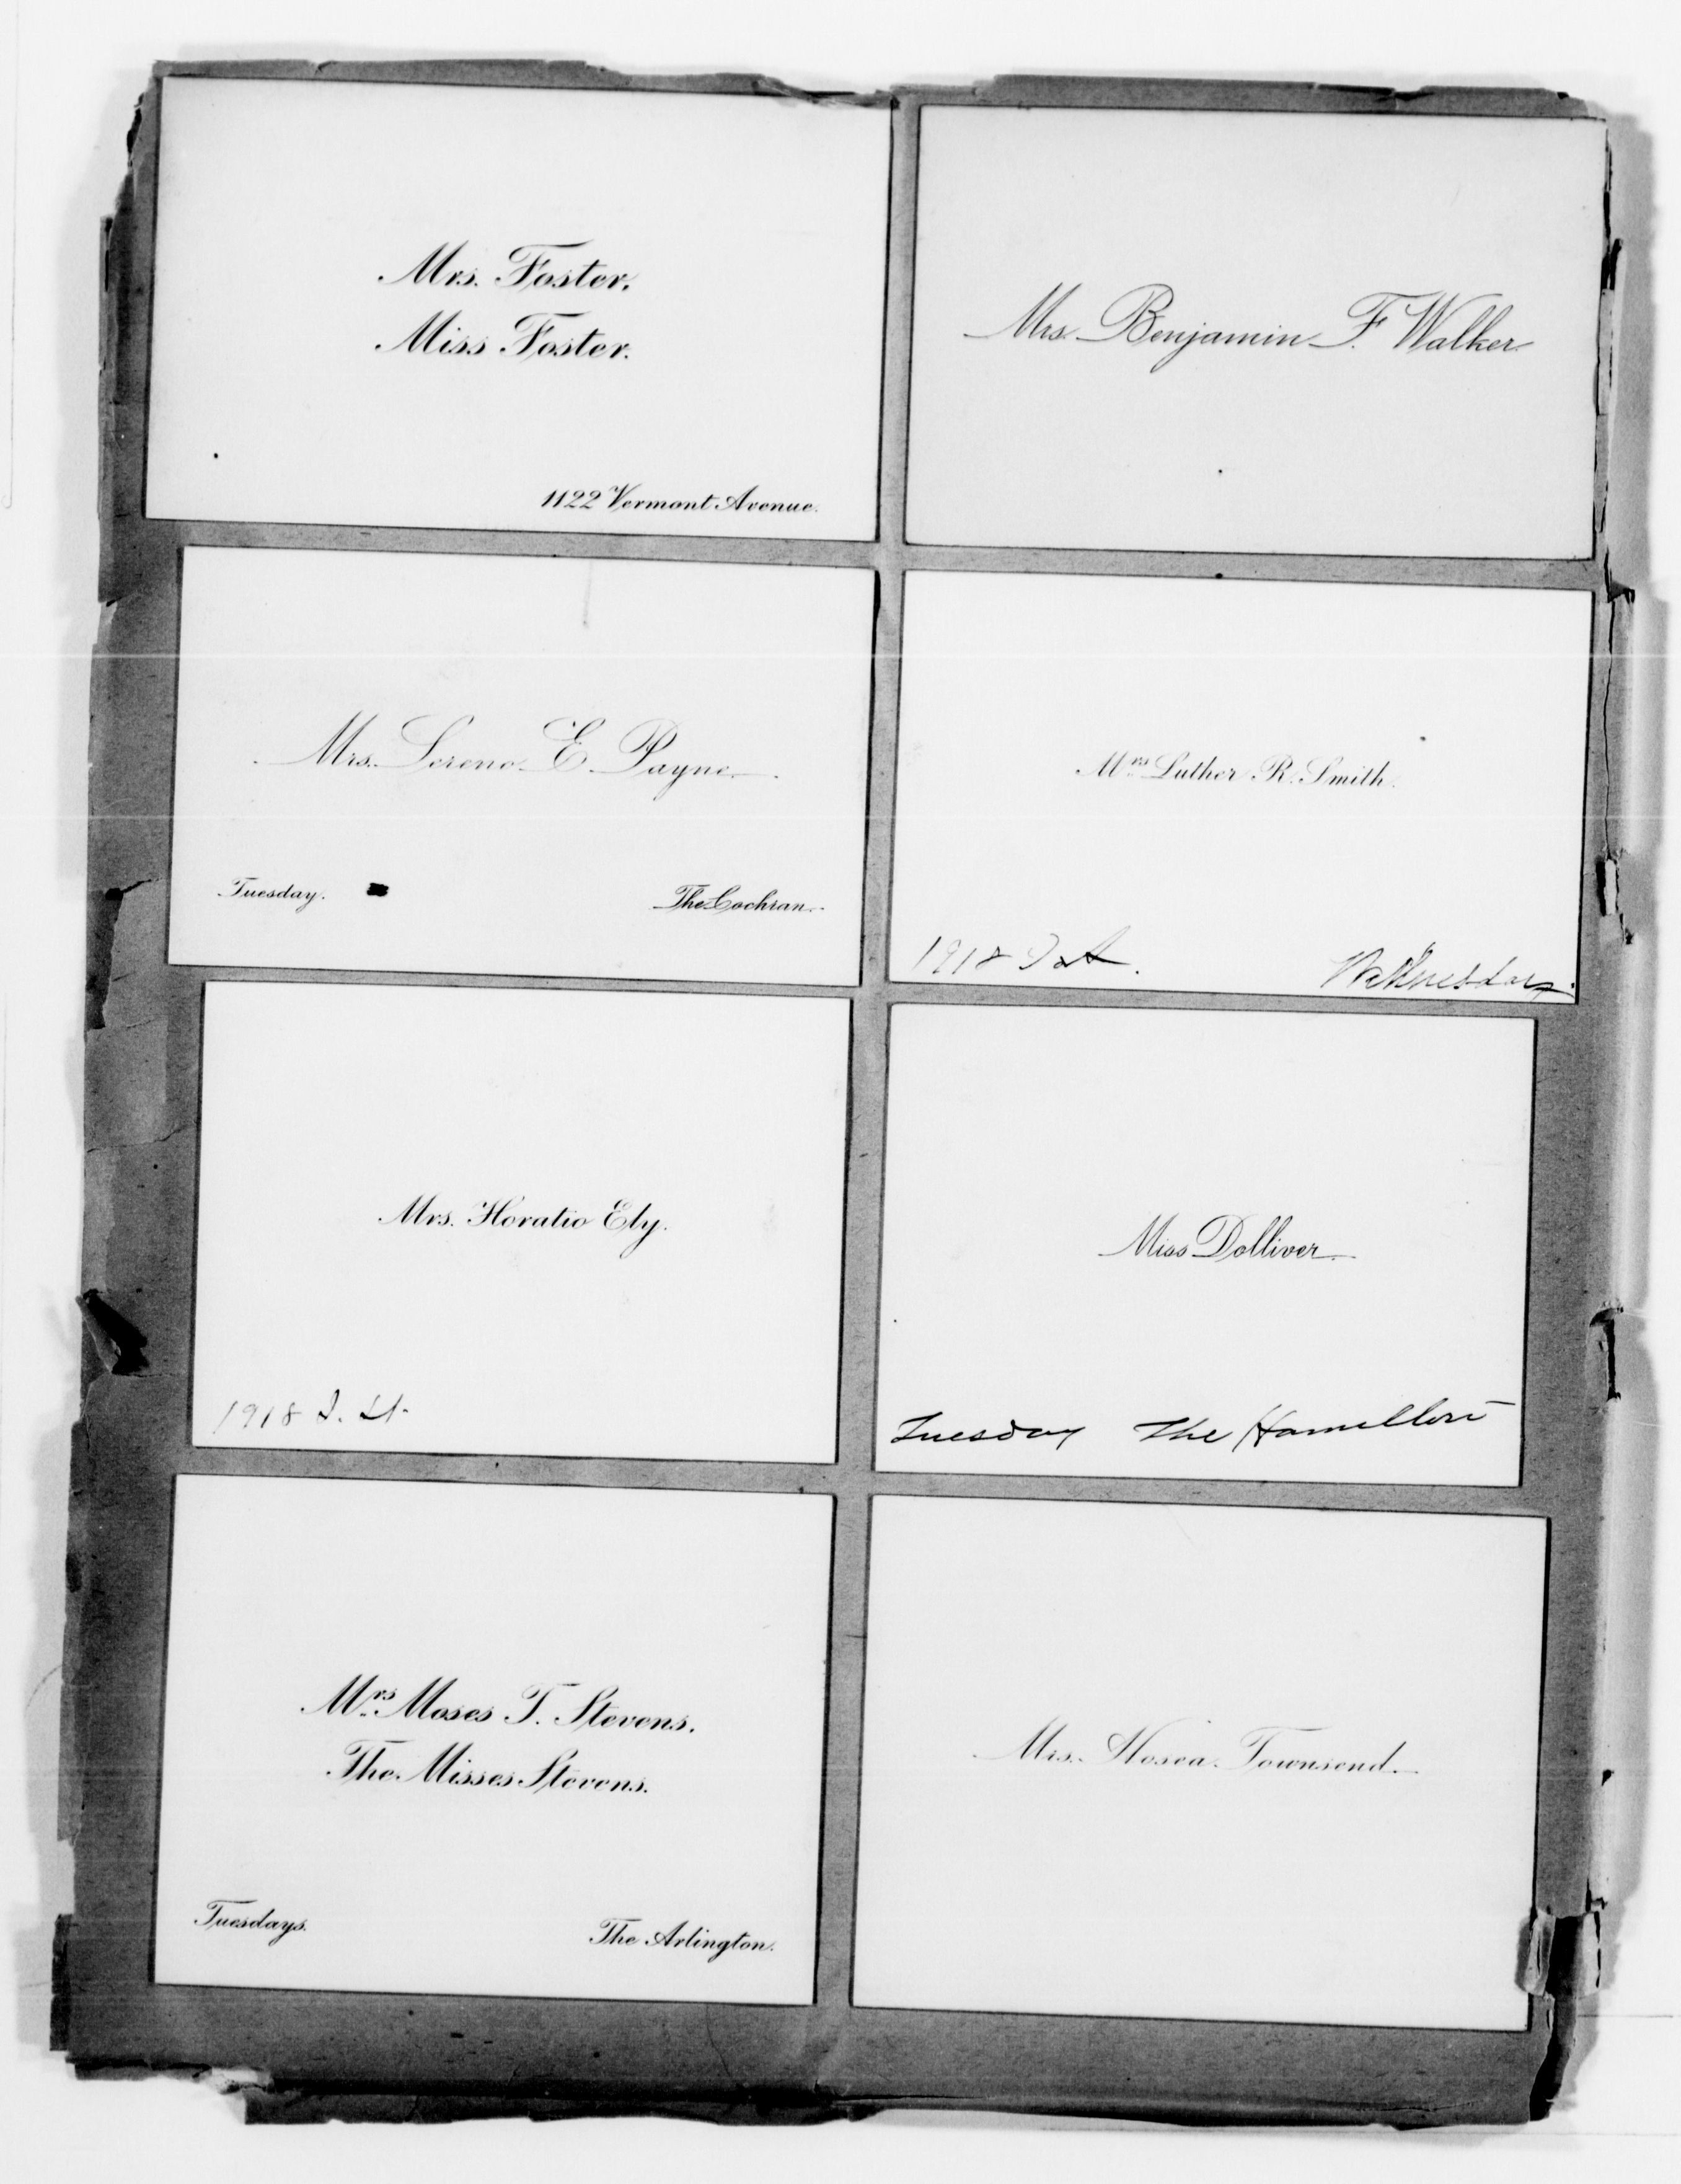 Mrs. Foster.
Miss Foster.
1122 Vermont Avenue.
Mrs. Benjamin F. Walker
Mrs. Sereno E. Payne
Tuesday.
The Cochran.
Mrs Luther R. Smith.
1918 I St.
Wednesday.
Mrs. Horatio Ely.
1918 I. St.
Miss Dolliver
Tuesday The Hamilton
Mrs Moses T. Stevens.
The Misses Stevens.
Tuesdays.
The Arlington.
Mrs. Hosea Townsend.